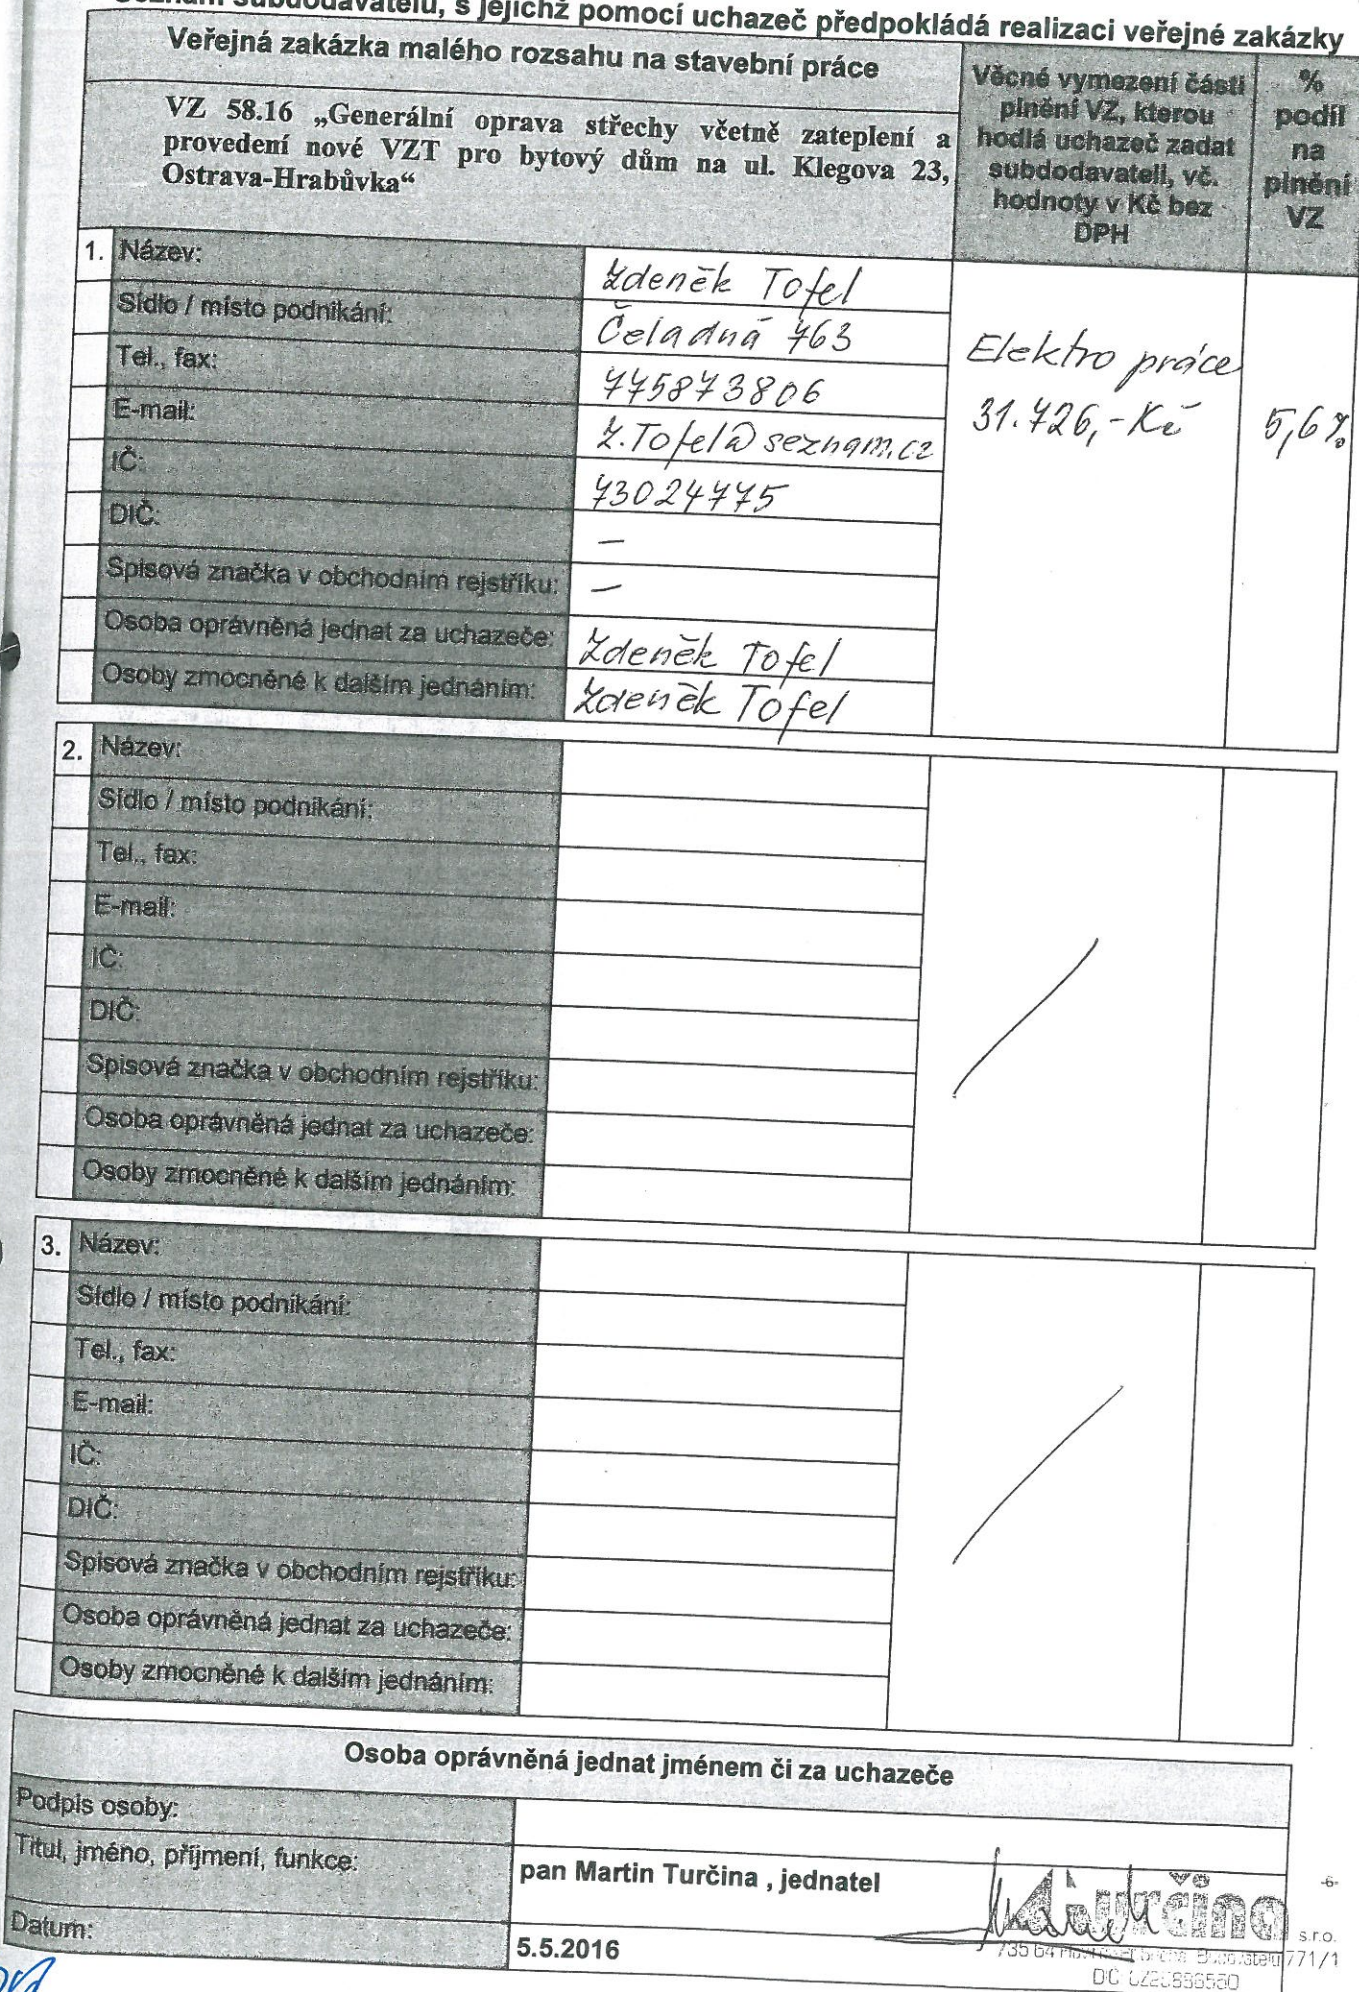 subdodavatelů, s jejichž pomocí uchazeč předpokládá realizaci veřejné zakázky
Veřejná zakázka malého rozsahu na stavební práce
VZ 58.16 „Generální oprava střechy včetně zateplení a
provedení nové VZT pro bytový dům na ul. Klegova 23,
Ostrava-Hrabůvka“
Věcné vymezení části
plnění VZ, kterou
hodlá uchazeč zadat
subdodavateli, vč.
hodnoty v Kč bez
DPH
%
podíl
na
plnění
VZ
1. Název: Zdeněk Tofel
Sídlo / místo podnikání: Čeladná 763
Tel., fax: 775873806
E-mail: Z.Tofel@seznam.cz
IČ: 73024775
DIČ: –
Spisová značka v obchodním rejstříku: –
Osoba oprávněná jednat za uchazeče: Zdeněk Tofel
Osoby zmocněné k dalším jednáním: Zdeněk Tofel
Elektro práce
31.726,-Kč
5,6%
2. Název:
Sídlo / místo podnikání:
Tel., fax:
E-mail:
IČ:
DIČ:
Spisová značka v obchodním rejstříku:
Osoba oprávněná jednat za uchazeče:
Osoby zmocněné k dalším jednáním:
3. Název:
Sídlo / místo podnikání:
Tel., fax:
E-mail:
IČ:
DIČ:
Spisová značka v obchodním rejstříku:
Osoba oprávněná jednat za uchazeče:
Osoby zmocněné k dalším jednáním:
Osoba oprávněná jednat jménem či za uchazeče
Podpis osoby:
Titul, jméno, příjmení, funkce: pan Martin Turčina , jednatel
Datum: 5.5.2016
-6-
s.r.o.
735 64
771/1